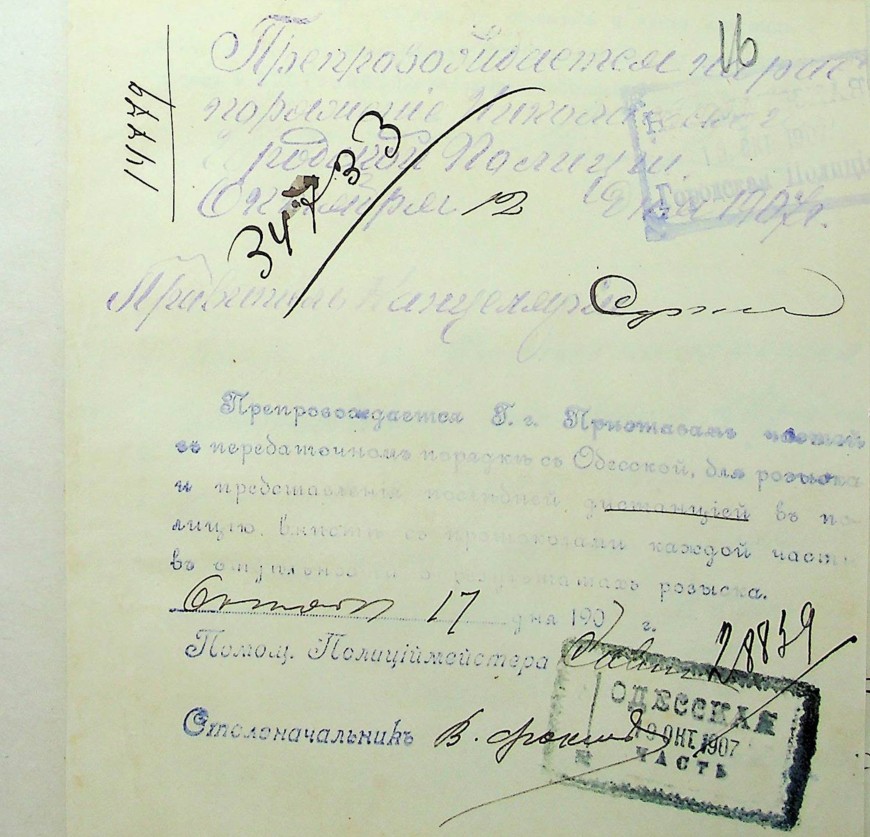 16
14779
Препровождается на рас-
поряженіе Николаевской
Городской Полиціи.
Октября 12 дня 1907 г.
34733
Городская Полиція
Правитель Канцеляріи
Препровождается Г. г. Приставамъ частей
въ передаточномъ порядкѣ съ Одесской, для розыска
и представленія послѣдней дистанціей въ по-
лицію, вмѣстѣ съ протоколами каждой части
въ отдѣльности о результатахъ розыска.
Октября 17 дня 1907 г.
Помощ. Полиціймейстера
28839
Столоначальникъ В.
ОДЕССКАЯ
19 ОКТ. 1907
ЧАСТЬ